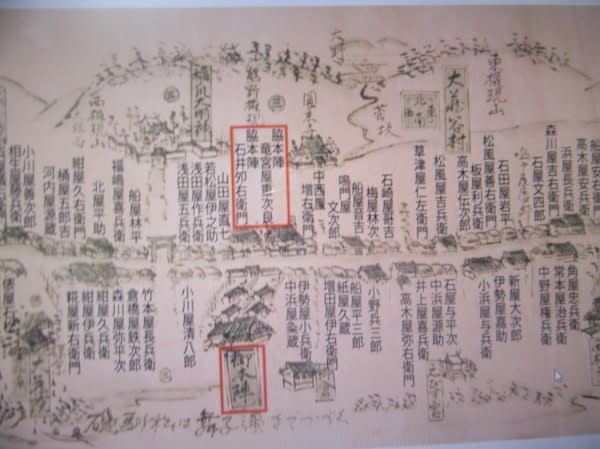 東権現山
大蔵谷村
西権現山
高木屋安兵衛
浜屋長兵衛
森川屋吉右衛門
石屋文四郎
石田屋岩平
松風屋善右衛門
板屋利兵衛
高木屋左次郎
松風屋吉兵衛
草津屋仁左衛門
石崎屋哥吉
梅屋林次
船屋音吉
鳴門屋
文次郎
増右衛門
中西屋
脇本陣
脇本陣
石井夘右衛門
山田屋直七
若松屋伊之助
浅田屋作兵衛
浅田屋五兵衛
船屋林平
福嶋屋喜兵衛
北屋平助
紺屋久右衛門
桶屋五郎吉
河内屋源蔵
小川屋善次郎
角屋忠兵衛
常本屋治兵衛
中野屋権兵衛
新屋大次郎
伊勢屋嘉助
小浜屋与兵衛
石屋与平次
中浜屋源助
井上屋喜兵衛
高木屋弥右衛門
小野兵三郎
船屋平三郎
紙屋久蔵
増田屋伊右衛門
伊勢屋小兵衛
中浜屋粂蔵
御本陣
小川屋清八郎
竹本屋長兵衛
倉橋屋鉄次郎
森川屋弥平次
紺屋久兵衛
紺屋伊兵衛
糀屋新右衛門